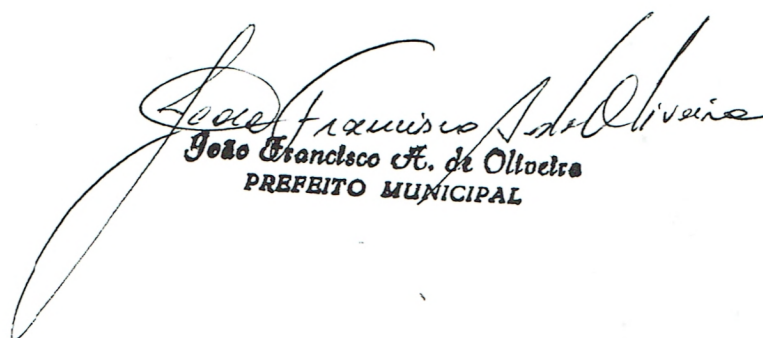 João Francisco A. de Oliveira
João Francisco A. de Oliveira
PREFEITO MUNICIPAL